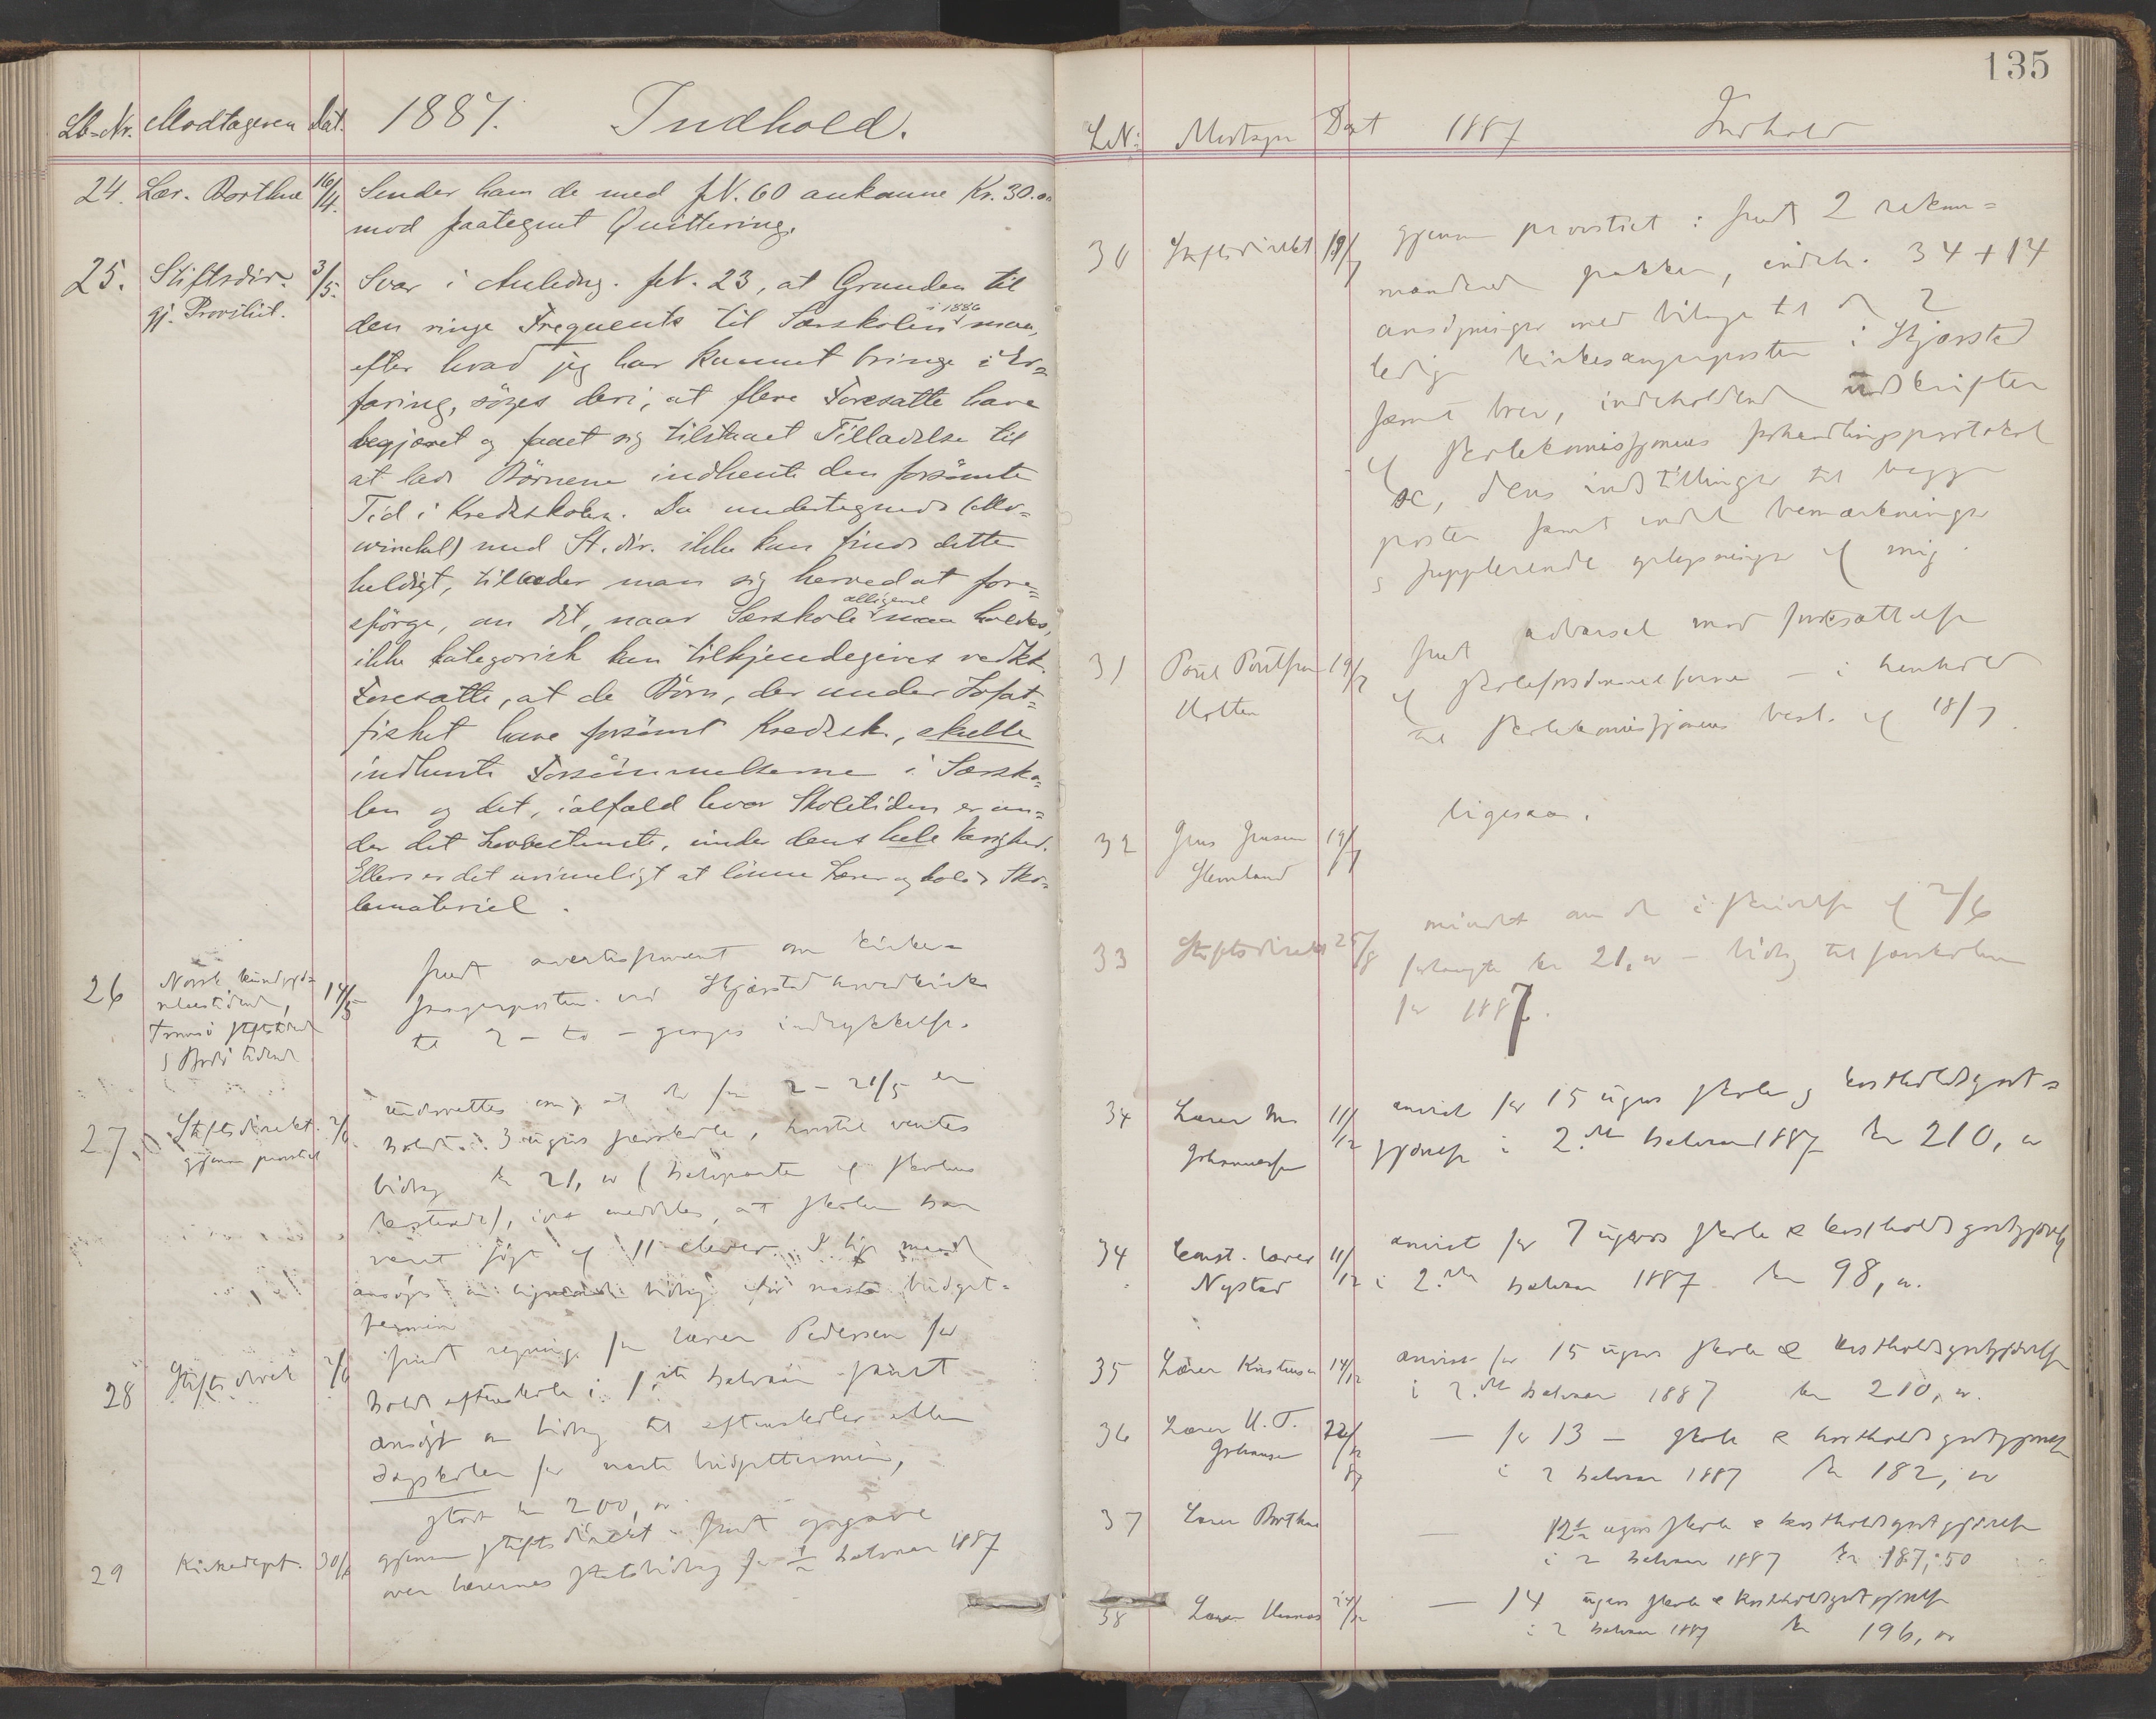 Lb-Nr. Modtageren Dat. 1887. Indhold.
24. Lær. Borthne 16/4. Sender ham de med jN. 60 ankomne Kr. 30.00
mod paategnet Quittering.
25. Stiftsdir. 3/5. Svar i Anledng. jN. 23, at Grunden til
gj. Provstiet. den ringe Frequents til Særskolen i 1886 maa,
efter hvad jeg har kunnet bringe i Er=
faring, søges deri, at flere Foresatte have
begjæret og faaet sig tilstaaet Tilladelse til
at lade Børnene indhente den forsömte
Tid i Kredsskolen. Da undertegnede (Mo=
winckel) med St. dir. ikke kan finde dette
heldigt, tillader man sig herved at fore=
spörge, om det, naar Særskole alligevel maa holdes,
ikke kategorisk kan tilkjendegives vedk.
Foresatte, at de Börn, der under Lofot=
fisket have forsömt Kredssk., skulle
indhente Forsömmelserne i Særsko=
len og det, ialfald hvor Skoletiden er un=
der det Lovbestemte, under dens hele Varighed.
Ellers er det urimeligt at lönne Lærer og holde Sko=
lemateriel.
26 Norsk kundgjö= 14/5 sendt avertissement om kirke=
relsestidende, sangerposten ved Hjærstad hovedkirke
Tromsö stiftstid til 2 - to - ganges indrykkelse.
& Bodö tidende
27. Stiftsdirekt. 2/6 underrettes om, at der fra 2 - 21/5 er
gjennem provstiet holdt 3 ugers særskole, hvortil ventes
bidrag kr 21, 00 (halvparten af skolens
kostende), idet meddeles, at skolen har
været sögt af 11 elever.
ansöges om lignende bidrag for næste budget=
termin
28 Stiftsdirek 2/6 sendt regning fra lærer Pedersen for
holdt aftenskole i 1ste halvaar samt
ansögt om bidrag til aftenskoler eller
dagskoler for næste budgettermin,
stort kr 200, 00
29 Kirkedept. 30/6 gjennem stiftsdirekt. sendt opgave
over lærernes statsbidrag for 1 halvaar 1887
135
LN: Modtager Dat 1887 Indhold
30 Stiftsdirekt 19/7 gjennem provstiet: sendt 2 rekom=
manderede pakker, indeh. 34 + 14
ansögninger med bilage til de 2
ledige kirkesangerposter i Hjærstad
samt brev, indeholdende udskrifter
af skolekommissjonens forhandlingsprotokol
&c, dens indstillinger til begge
poster samt endel bemærkninger
& supplerende oplysninger af mig.
31 Poul Poulsen 19/7 sendt advarsel mod fortsættelse
Hotten af skoleforsömmelserne - i henhold
til skolekommissjonens besl. af 18/7.
32 Jens Jensen 19/7 ligesaa.
33 Stiftsdirekt 25/8 mindet om de i skrivelse af 2/6
forlangte kr 21, 00 - bidrag til særskolen
for 1887.
34 Lærer 11/12 anvist for 15 ugers skole & kostholdsgodt=
Johannessen gjörelse i 2det halvaar 1887 kr 210, 00
34 const. lærer 11/12 anvist for 7 ugers skole & kostholdsgodtgjörelse
Nystad i 2det halvaar 1887 kr 98, 00.
35 Lærer Kristensen 14/12 anvist for 15 ugers skole & kostholdsgodtgjörelse
i 2det halvaar 1887 kr 210, 00.
36 Lærer H. T. 22/12 87 — for 13 — skole & kostholdsgodtgjörelse
Johansen i 2 halvaar 1887 kr 182, 00
37 Lærer Borthne — 12½ ugers skole & kostholdsgodtgjörelse
i 2 halvaar 1887 kr 187, 50
38 Lærer 24/12 — 14 ugers skole & kostholdsgodtgjörelse
i 2 halvaar 1887 kr 196, 00